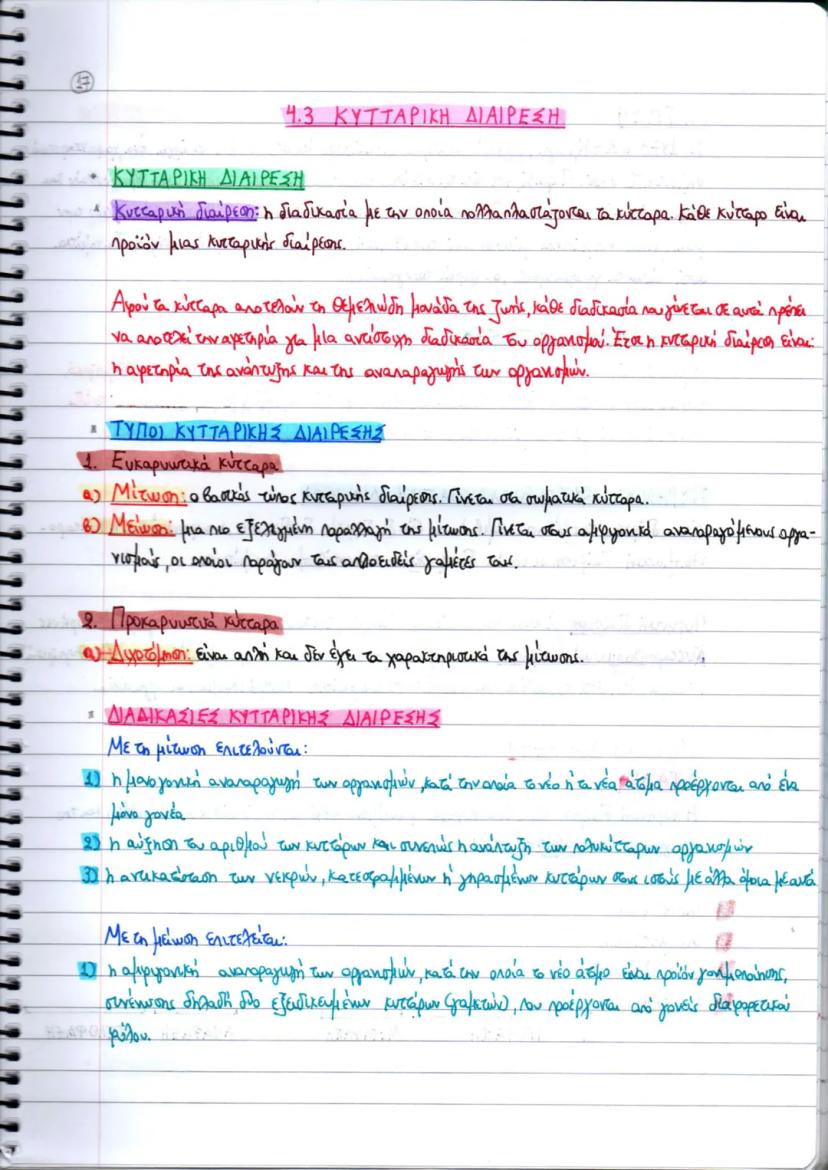 17
4.3 ΚΥΤΤΑΡΙΚΗ ΔΙΑΙΡΕΣΗ
ΚΥΤΤΑΡΙΚΗ ΔΙΑΙΡΕΣΗ
Κυτταρική διαίρεση: η διαδικασία με την οποία πολλαπλασιάζονται τα κύτταρα. Κάθε κύτταρο είναι
προϊόν μιας κυτταρικής διαίρεσης.
Αφού τα κύτταρα αποτελούν τη θεμελιώδη μονάδα της ζωής, κάθε διαδικασία που γίνεται σε αυτά πρέπει
να αποτελεί την αφετηρία για μια αντίστοιχη διαδικασία του οργανισμού. Έτσι η κυτταρική διαίρεση είναι:
η αφετηρία της ανάπτυξης και της αναπαραγωγής των οργανισμών.
ΤΥΠΟΙ ΚΥΤΤΑΡΙΚΗΣ ΔΙΑΙΡΕΣΗΣ
1. Ευκαρυωτικά κύτταρα
α) Μίτωση: ο βασικός τύπος κυτταρικής διαίρεσης. Γίνεται στα σωματικά κύτταρα.
β) Μείωση: μια πιο εξελιγμένη παραλλαγή της μίτωσης. Γίνεται στους αμφιγονικά αναπαραγόμενους οργα-
νισμούς, οι οποίοι παράγουν τους απλοειδείς γαμέτες τους.
2. Προκαρυωτικά κύτταρα
α) Διχοτόμηση: είναι απλή και δεν έχει τα χαρακτηριστικά της μίτωσης.
ΔΙΑΔΙΚΑΣΙΕΣ ΚΥΤΤΑΡΙΚΗΣ ΔΙΑΙΡΕΣΗΣ
Με τη μίτωση επιτελούνται:
1) η μονογονική αναπαραγωγή των οργανισμών, κατά την οποία το νέο ή τα νέα άτομα προέρχονται από ένα
μόνο γονέα
2) η αύξηση του αριθμού των κυττάρων και συνεπώς η ανάπτυξη των πολυκύτταρων οργανισμών
3) η αντικατάσταση των νεκρών, κατεστραμμένων ή γηρασμένων κυττάρων στους ιστούς με άλλα όμοια με αυτά
Με τη μείωση επιτελείται:
1) η αμφιγονική αναπαραγωγή των οργανισμών, κατά την οποία το νέο άτομο είναι προϊόν γονιμοποίησης,
συνένωσης δηλαδή δύο εξειδικευμένων κυττάρων (γαμετών), που προέρχονται από γονείς διαφορετικού
φύλου.